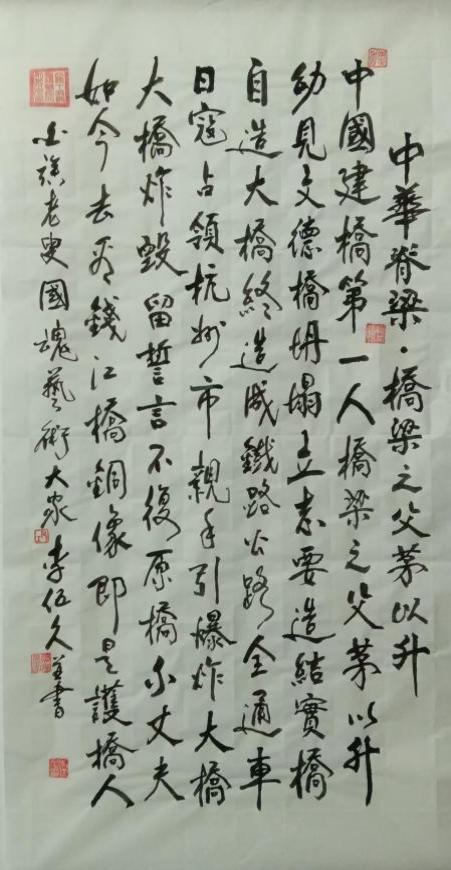 中華脊梁·橋梁之父茅以升
中國建橋第一人橋梁之父茅以升
幼見文德橋坍塌立志要造結實橋
自造大橋終造成鐵路公路全通車
日寇占領杭州市親手引爆炸大橋
大橋炸毀留誓言不復原橋不丈夫
如今去看錢江橋銅像即是護橋人
老叟國魂藝術大家李伍久并書